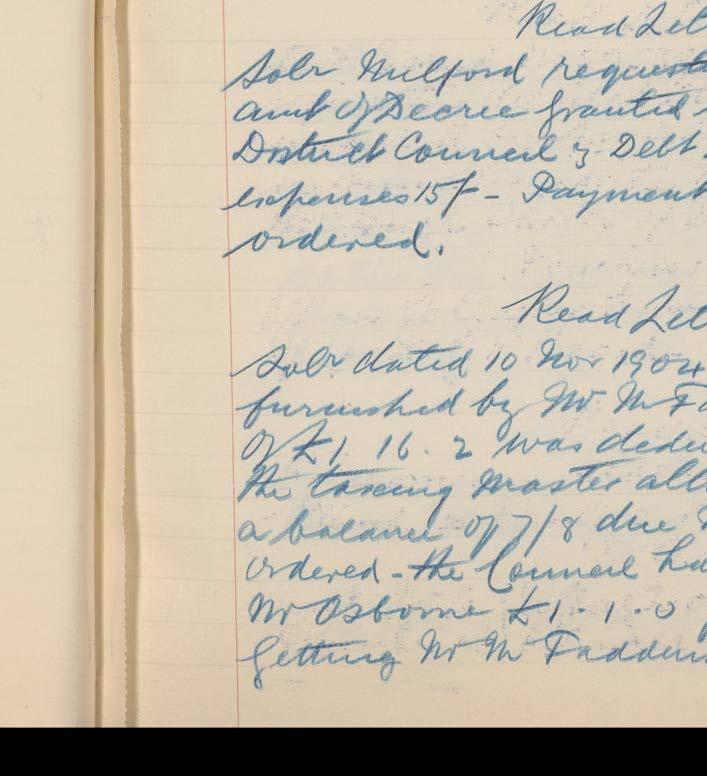 Read Let
Solr Milford request
amt of Decree granted
District Council & Debt
expenses 15/- - Payment
ordered.
Read Let
Solr dated 10 Nov 1904
furnished by Mr McFa
of £1. 16. 2 was dedu
the taxing Master all
a balance of 7/8 due
ordered - the Council ha
Mr Osborne £1. 1. 0
getting Mr McFaddens